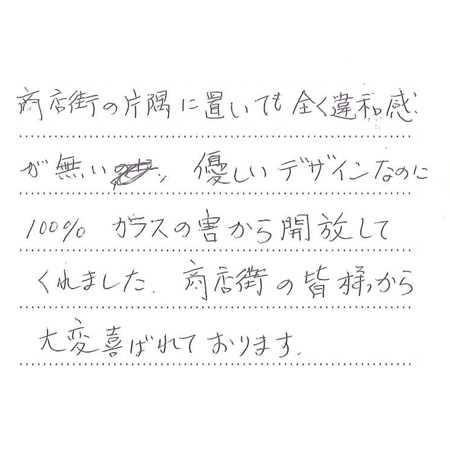 商店街の片隅に置いても全く違和感
が無い、優しいデザインなのに
100% カラスの害から開放して
くれました。商店街の皆様から
大変喜ばれております。